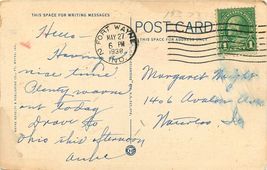 THIS SPACE FOR WRITING MESSAGES
POST CARD
FORT WAYNE
MAY 27
6 PM
1938
IND.
1
Hello -
Having
nice time
Plenty warm
out today
Drove to
Ohio this afternoon
Margaret Wright
1406 Avalon
Waterloo, Ia